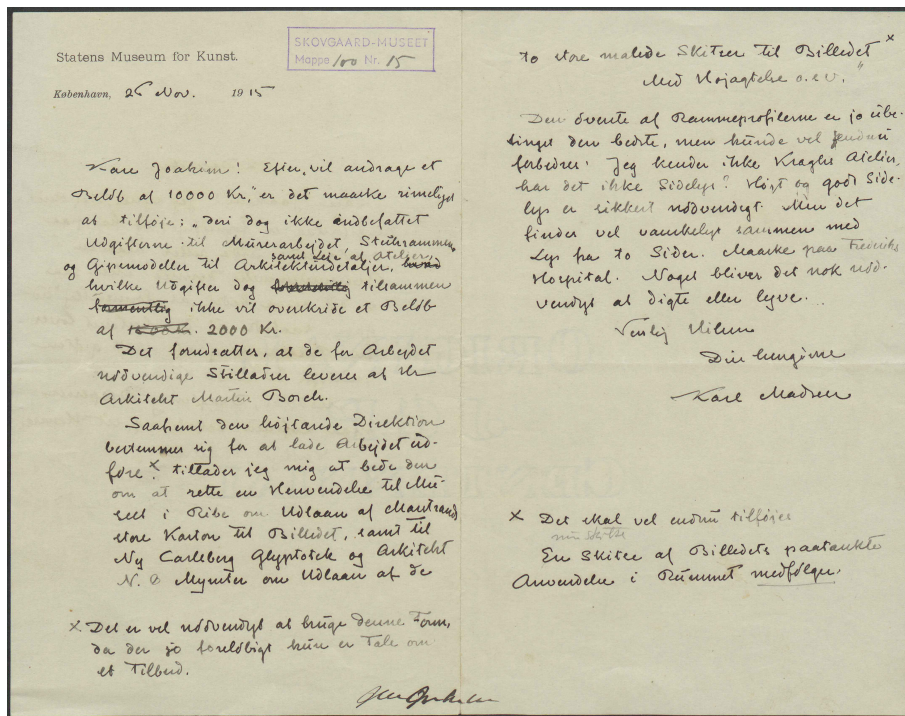 Statens Museum for Kunst.
SKOVGAARD-MUSEET
Mappe 100 Nr. 15
København, 26 Nov. 1915
Kære Joakim! Efter „vil andrage et
Beløb af 10000 Kr.“, er det maaske rimeligst
at tilføje: „deri dog ikke indbefattet
Udgifterne til Murerarbejdet, Stukrammen
og Gipsmodeller til Arkitekturdetaljer,
samt Leje af Atelier,
hvilke Udgifter dog tilsammen
ikke vil overskride et Beløb
af 2000 Kr.
Det forudsætter, at de for Arbejdet
nödvendige Stilladser leveres af Hr
Arkitekt Martin Borch.
Saafremt den höjtærede Direktion
bestemmer sig for at lade Arbejdet ud-
føre x, tillader jeg mig at bede den
om at rette en Henvendelse til Mu-
seet i Ribe om Udlaan af Marstrands
store Karton til Billedet, samt til
Ny Carlsberg Glyptotek og Arkitekt
N. Mynster om Udlaan af de
x Det er vel nödvendigt at bruge denne Form,
da der jo foreløbigt kun er Tale om
et Tilbud.
to store malede Skitser til Billedet x
Med Højagtelse o.s.v.“
Den överste af Rammeprofilerne er jo ube-
tinget den bedste, men kunde vel endnu
forbedres! Jeg kender ikke Kraghs Atelier,
har det ikke Sidelys? Højt og godt Side-
lys er sikkert nödvendigt. Men det
findes vel vanskeligt sammen med
Lys fra to Sider. Maaske paa Frederiks
Hospital. Noget bliver det nok nöd-
vendigt at digte eller lyve.
Venlig Hilsen
Din hengivne
Karl Madsen
x Det skal vel endnu tilføjes
min Skitse
En Skitse af Billedets paatænkte
Anvendelse i Rummet medfølger.